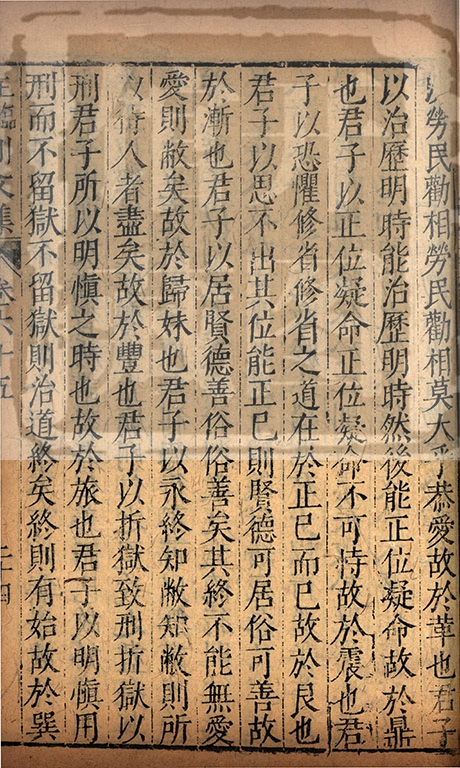 勞民勸相勞民勸相莫大乎恭愛故於革也君子
以治歷明時能治歷明時然後能正位凝命故於鼎
也君子以正位凝命正位凝命不可恃故於震也君
子以恐懼修省修省之道在於正已而已故於艮也
君子以思不出其位能正已則賢德可居俗可善故
於漸也君子以居賢德善俗俗善矣其終不能無愛
愛則敝矣故於歸妹也君子以永終知敝知敝則所
以待人者盡矣故於豐也君子以折獄致刑折獄以
刑君子所以明愼之時也故於旅也君子以明愼用
刑而不留獄不留獄則治道終矣終則有始故於巽
王臨川文集 卷六十五 二十四